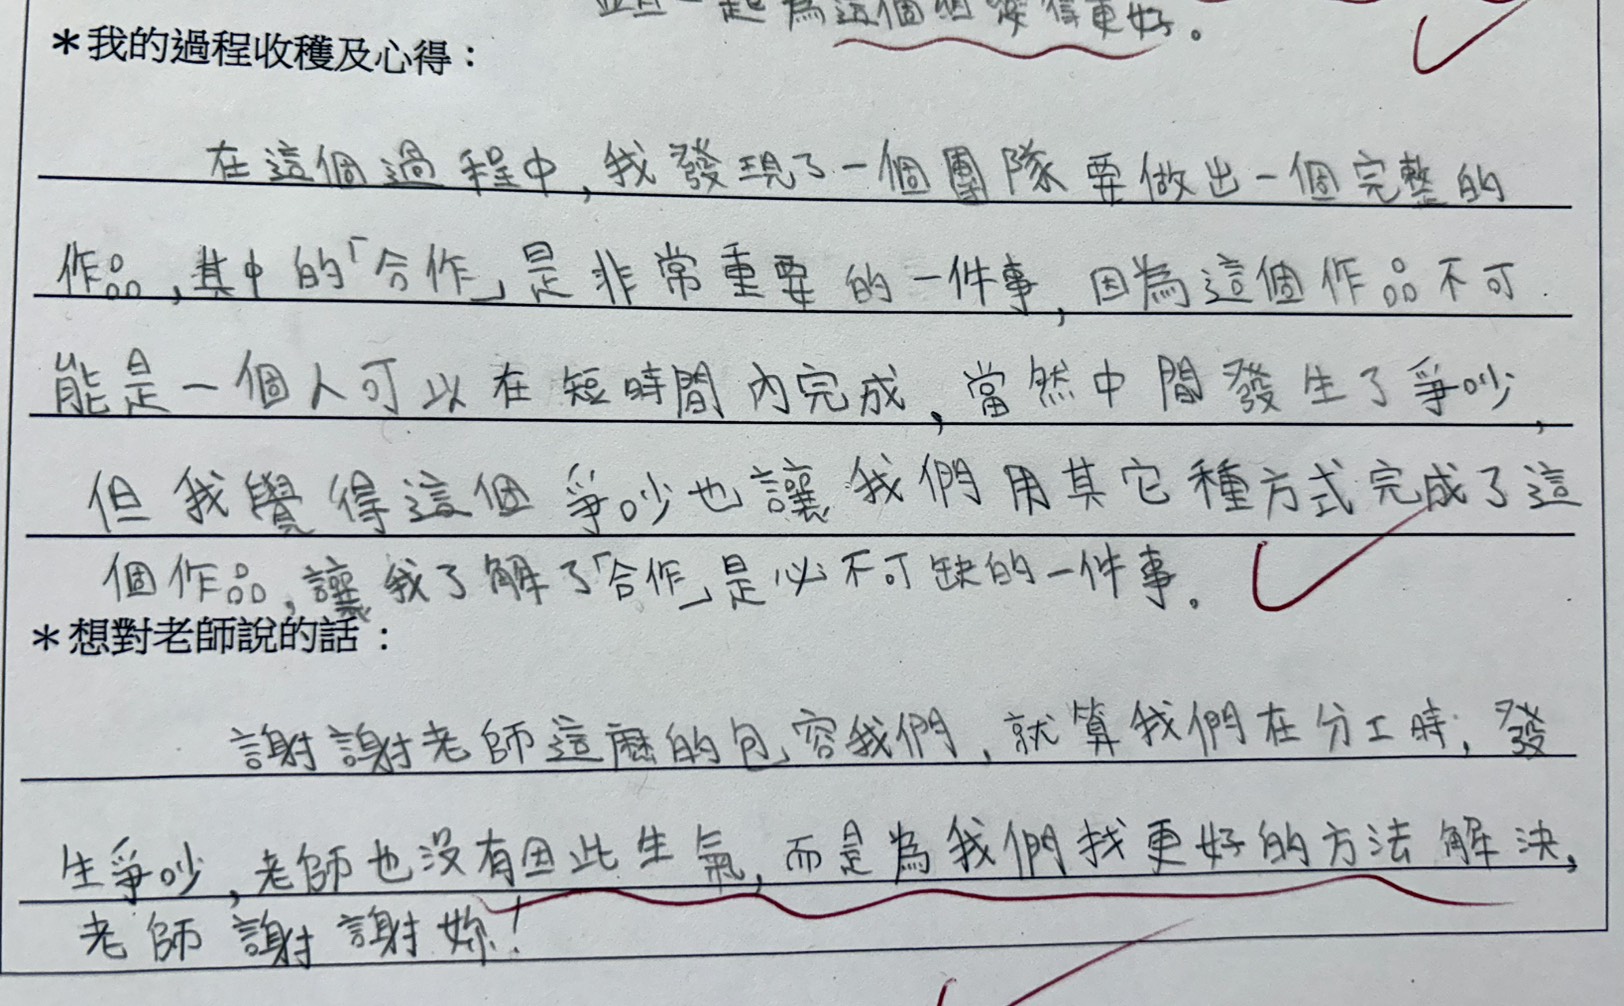 一起為這個組變得更好。
*我的過程收穫及心得：
在這個過程中，我發現了一個團隊要做出一個完整的
作品，其中的「合作」是非常重要的一件事，因為這個作品不可
能是一個人可以在短時間內完成，當然中間發生了爭吵，
但我覺得這個爭吵也讓我們用其它種方式完成了這
個作品，讓我了解了「合作」是必不可缺的一件事。
*想對老師說的話：
謝謝老師這麼的包容我們，就算我們在分工時，發
生爭吵，老師也沒有因此生氣，而是為我們找更好的方法解決，
老師謝謝妳！